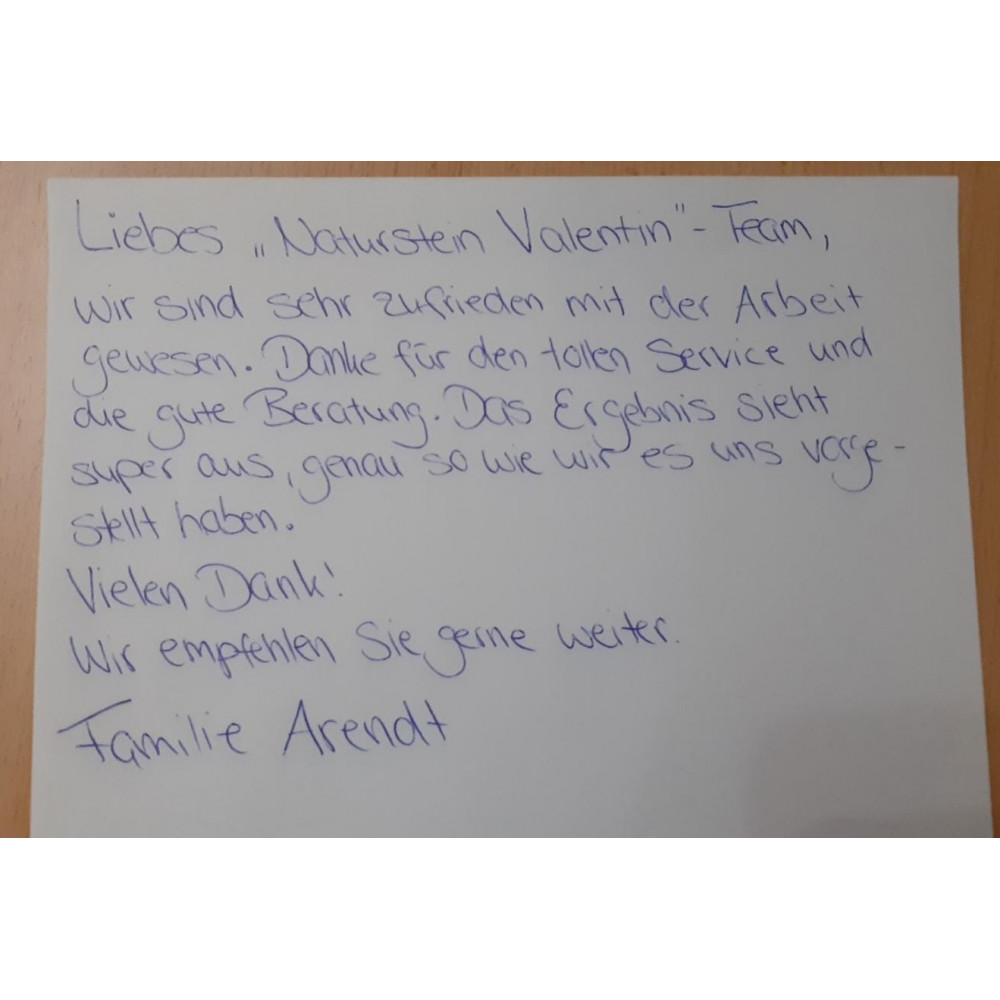 Liebes „Naturstein Valentin"- Team,
wir sind sehr zufrieden mit der Arbeit
gewesen. Danke für den tollen Service und
die gute Beratung. Das Ergebnis sieht
super aus, genau so wie wir es uns vorge-
stellt haben.
Vielen Dank!
Wir empfehlen Sie gerne weiter.
Familie Arendt